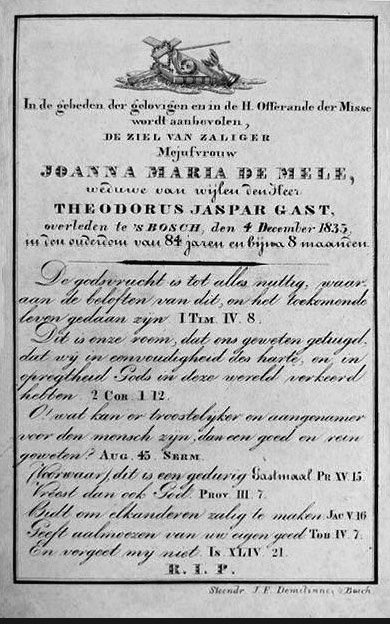 In de gebeden der gelovigen en in de H. Offerande der Misse
wordt aanbevolen,
DE ZIEL VAN ZALIGER
Mejufvrouw
JOANNA MARIA DE MELE,
weduwe van wijlen den Heer
THEODORUS JASPAR GAST,
overleden te 'S BOSCH, den 4 December 1835,
in den ouderdom van 84 jaren en bijna 8 maanden.
De godsvrucht is tot alles nuttig, waar-
aan de beloften van dit, en het toekomende
leven gedaan zijn. I TIM. IV. 8.
Dit is onze roem, dat ons geweten getuigd,
dat wij in eenvoudigheid des harte, en in
opregtheid Gods in deze wereld verkeerd
hebben. 2 COR. I 12.
O! wat kan er troostelyker en aangenamer
voor den mensch zijn, dan een goed en rein
geweten? AUG. 45. SERM.
(Voorwaar) dit is een gedurig Gastmaal PR. XV. 15.
Vreest dan ook God. PROV. III. 7.
Bidt om elkanderen zalig te maken JAC. V 16
Geeft aalmoezen van uw eigen goed TOB. IV. 7.
En vergeet my niet. IS XLIV. 21.
R. I. P.
Steendr. J. F. Demelinne, 's Bosch